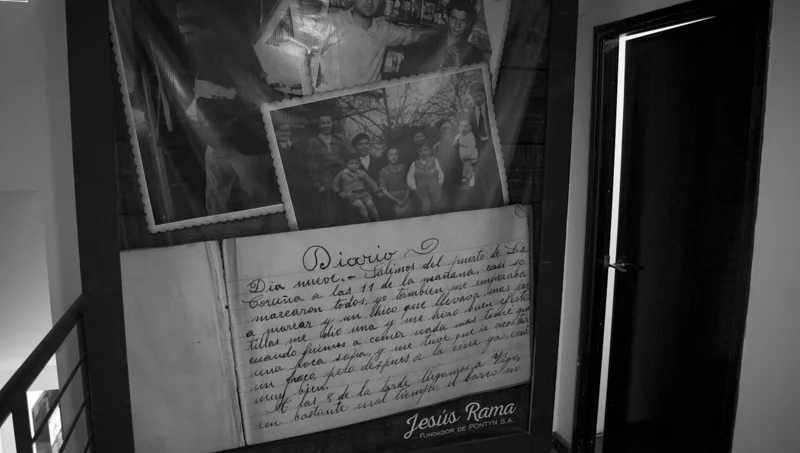 Diario
Dia nueve.- Salimos del puerto de La
Coruña a las 11 de la mañana casi se
marearon todos, yo tambien me empezaba
a marear y un chico que llevava unas pas
tillas me dio una y me hizo buen efecto
cuando fuimos a comer nada mas tube que
una poca sopa, y me tuve que ir acostar
un poco, pero despues a la cena ya cené
muy bien.
A las 8 de la tarde llegamos a Vigo,
con bastante mal tiempo, el barco no
Jesús Rama
FUNDADOR DE PONTYN S.A.